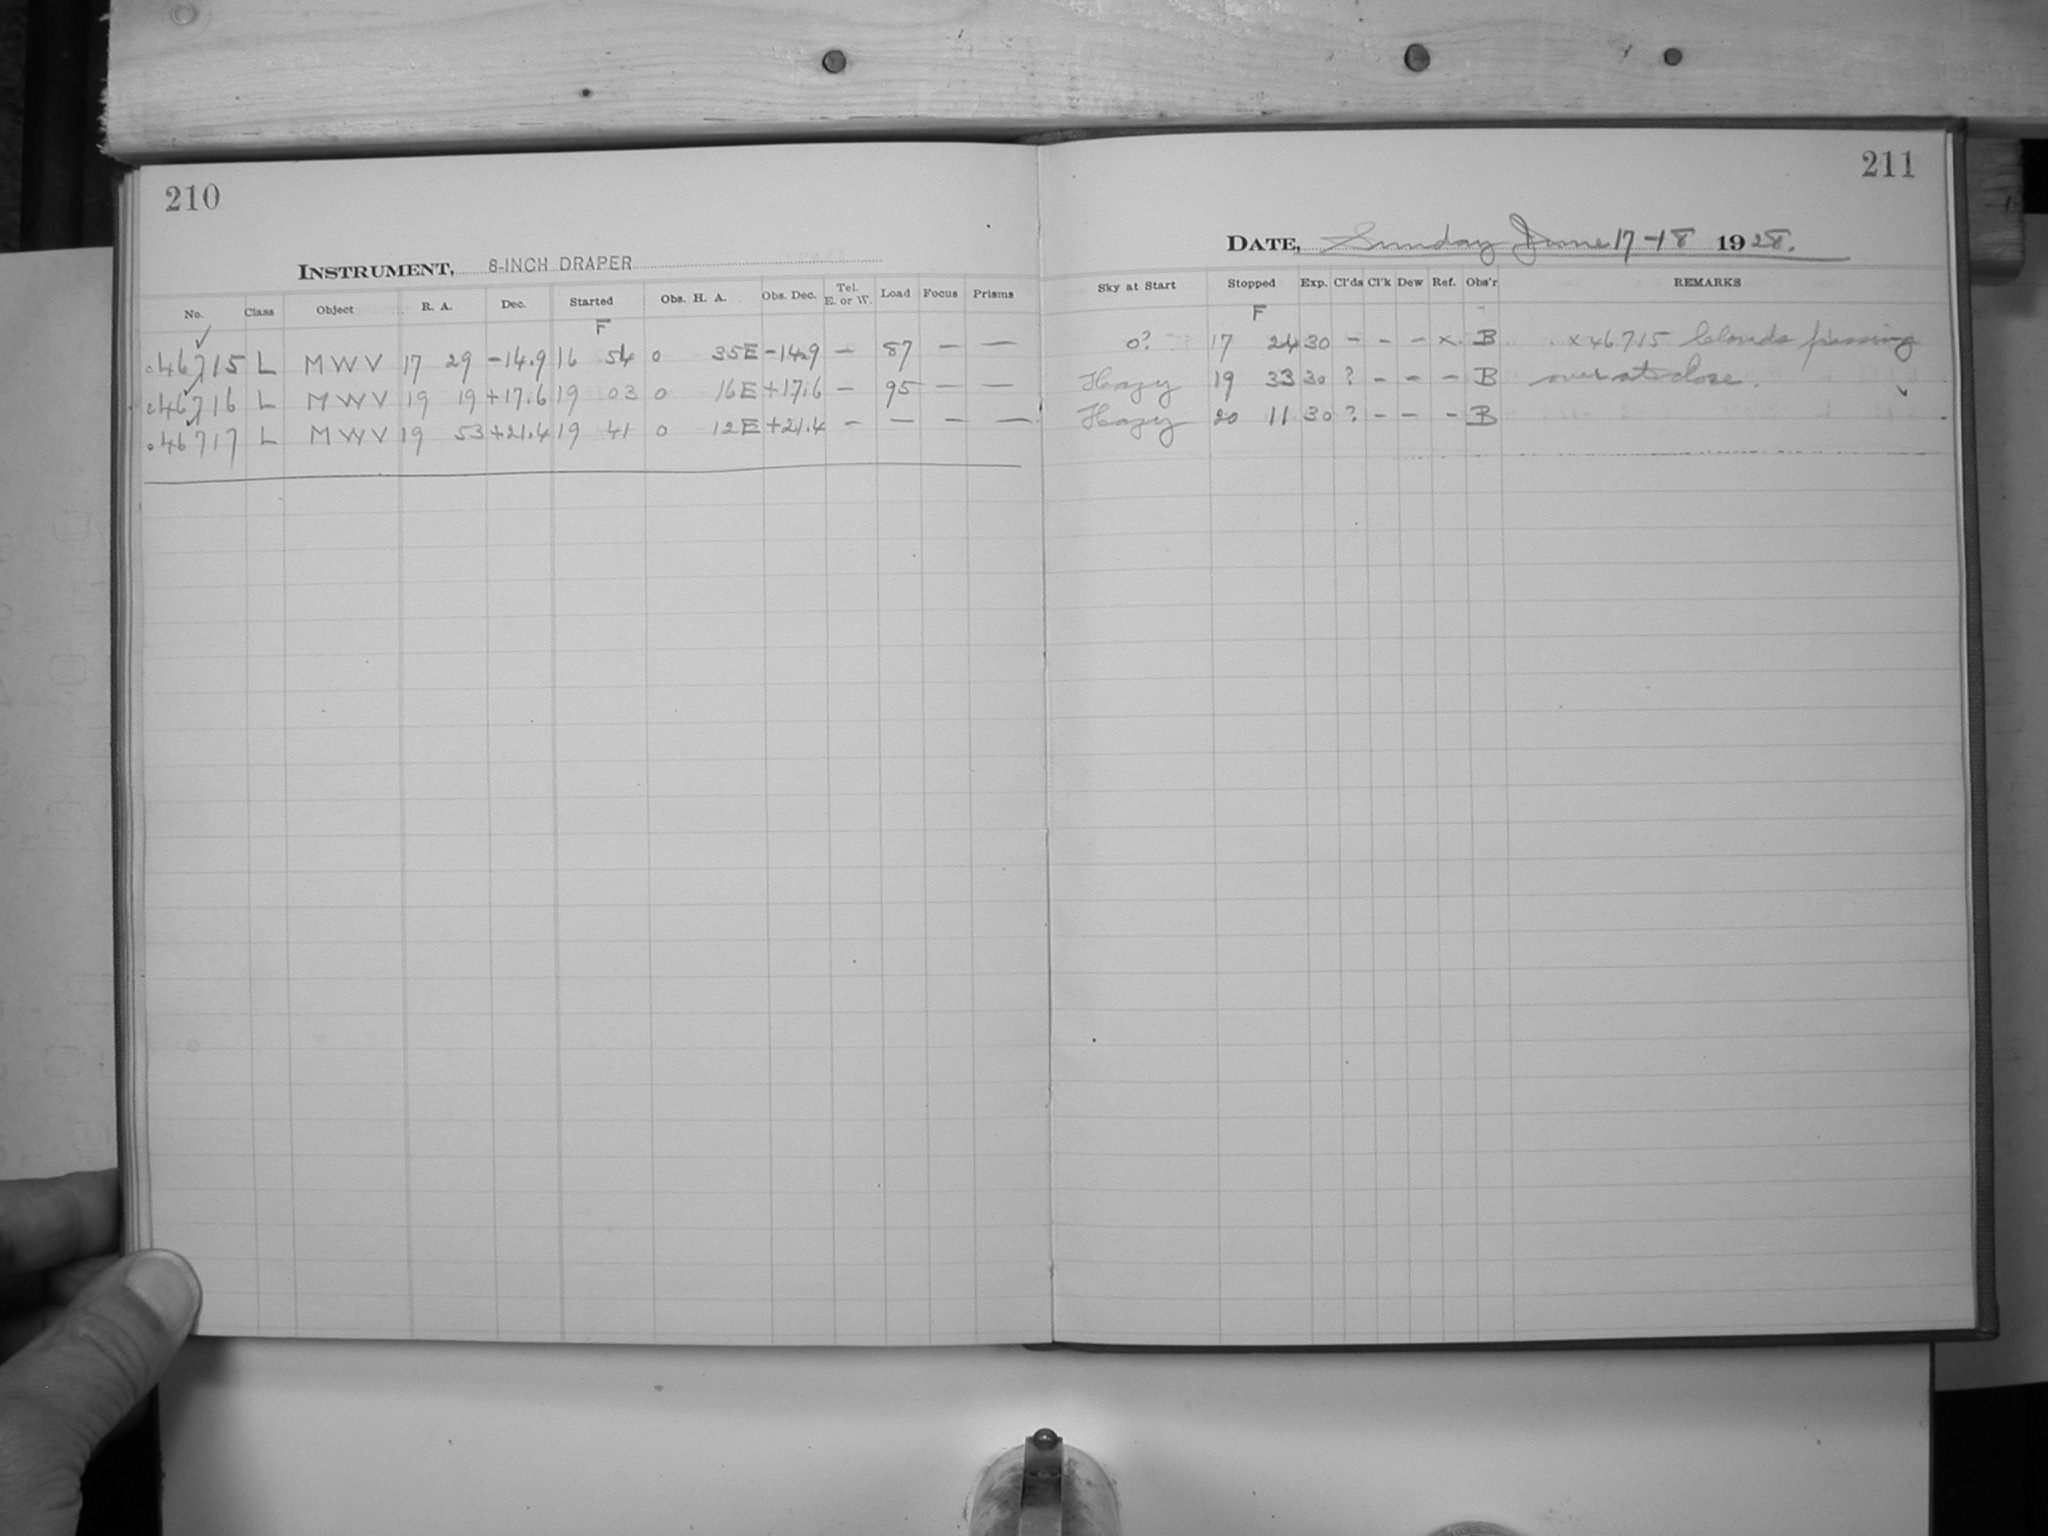 210
INSTRUMENT, 8-INCH DRAPER
No. Class Object R. A. Dec. Started Obs. H. A. Obs. Dec. Tel. E. or W. Load Focus Prisms
F
46715 L MWV 17 29 -14.9 16 54 0 35E -14.9 — 87 — —
46716 L MWV 19 19 +17.6 19 03 0 16E +17.6 — 95 — —
46717 L MWV 19 53 +21.4 19 41 0 12E +21.4 — — — —
211
DATE, Sunday June 17-18 1928.
Sky at Start Stopped Exp. Cl'ds Cl'k Dew Ref. Obs'r REMARKS
F
0? 17 24 30 - - - x B x 46715 Clouds passing
Hazy 19 33 30 ? - - - B over at close.
Hazy 20 11 30 ? - - - B